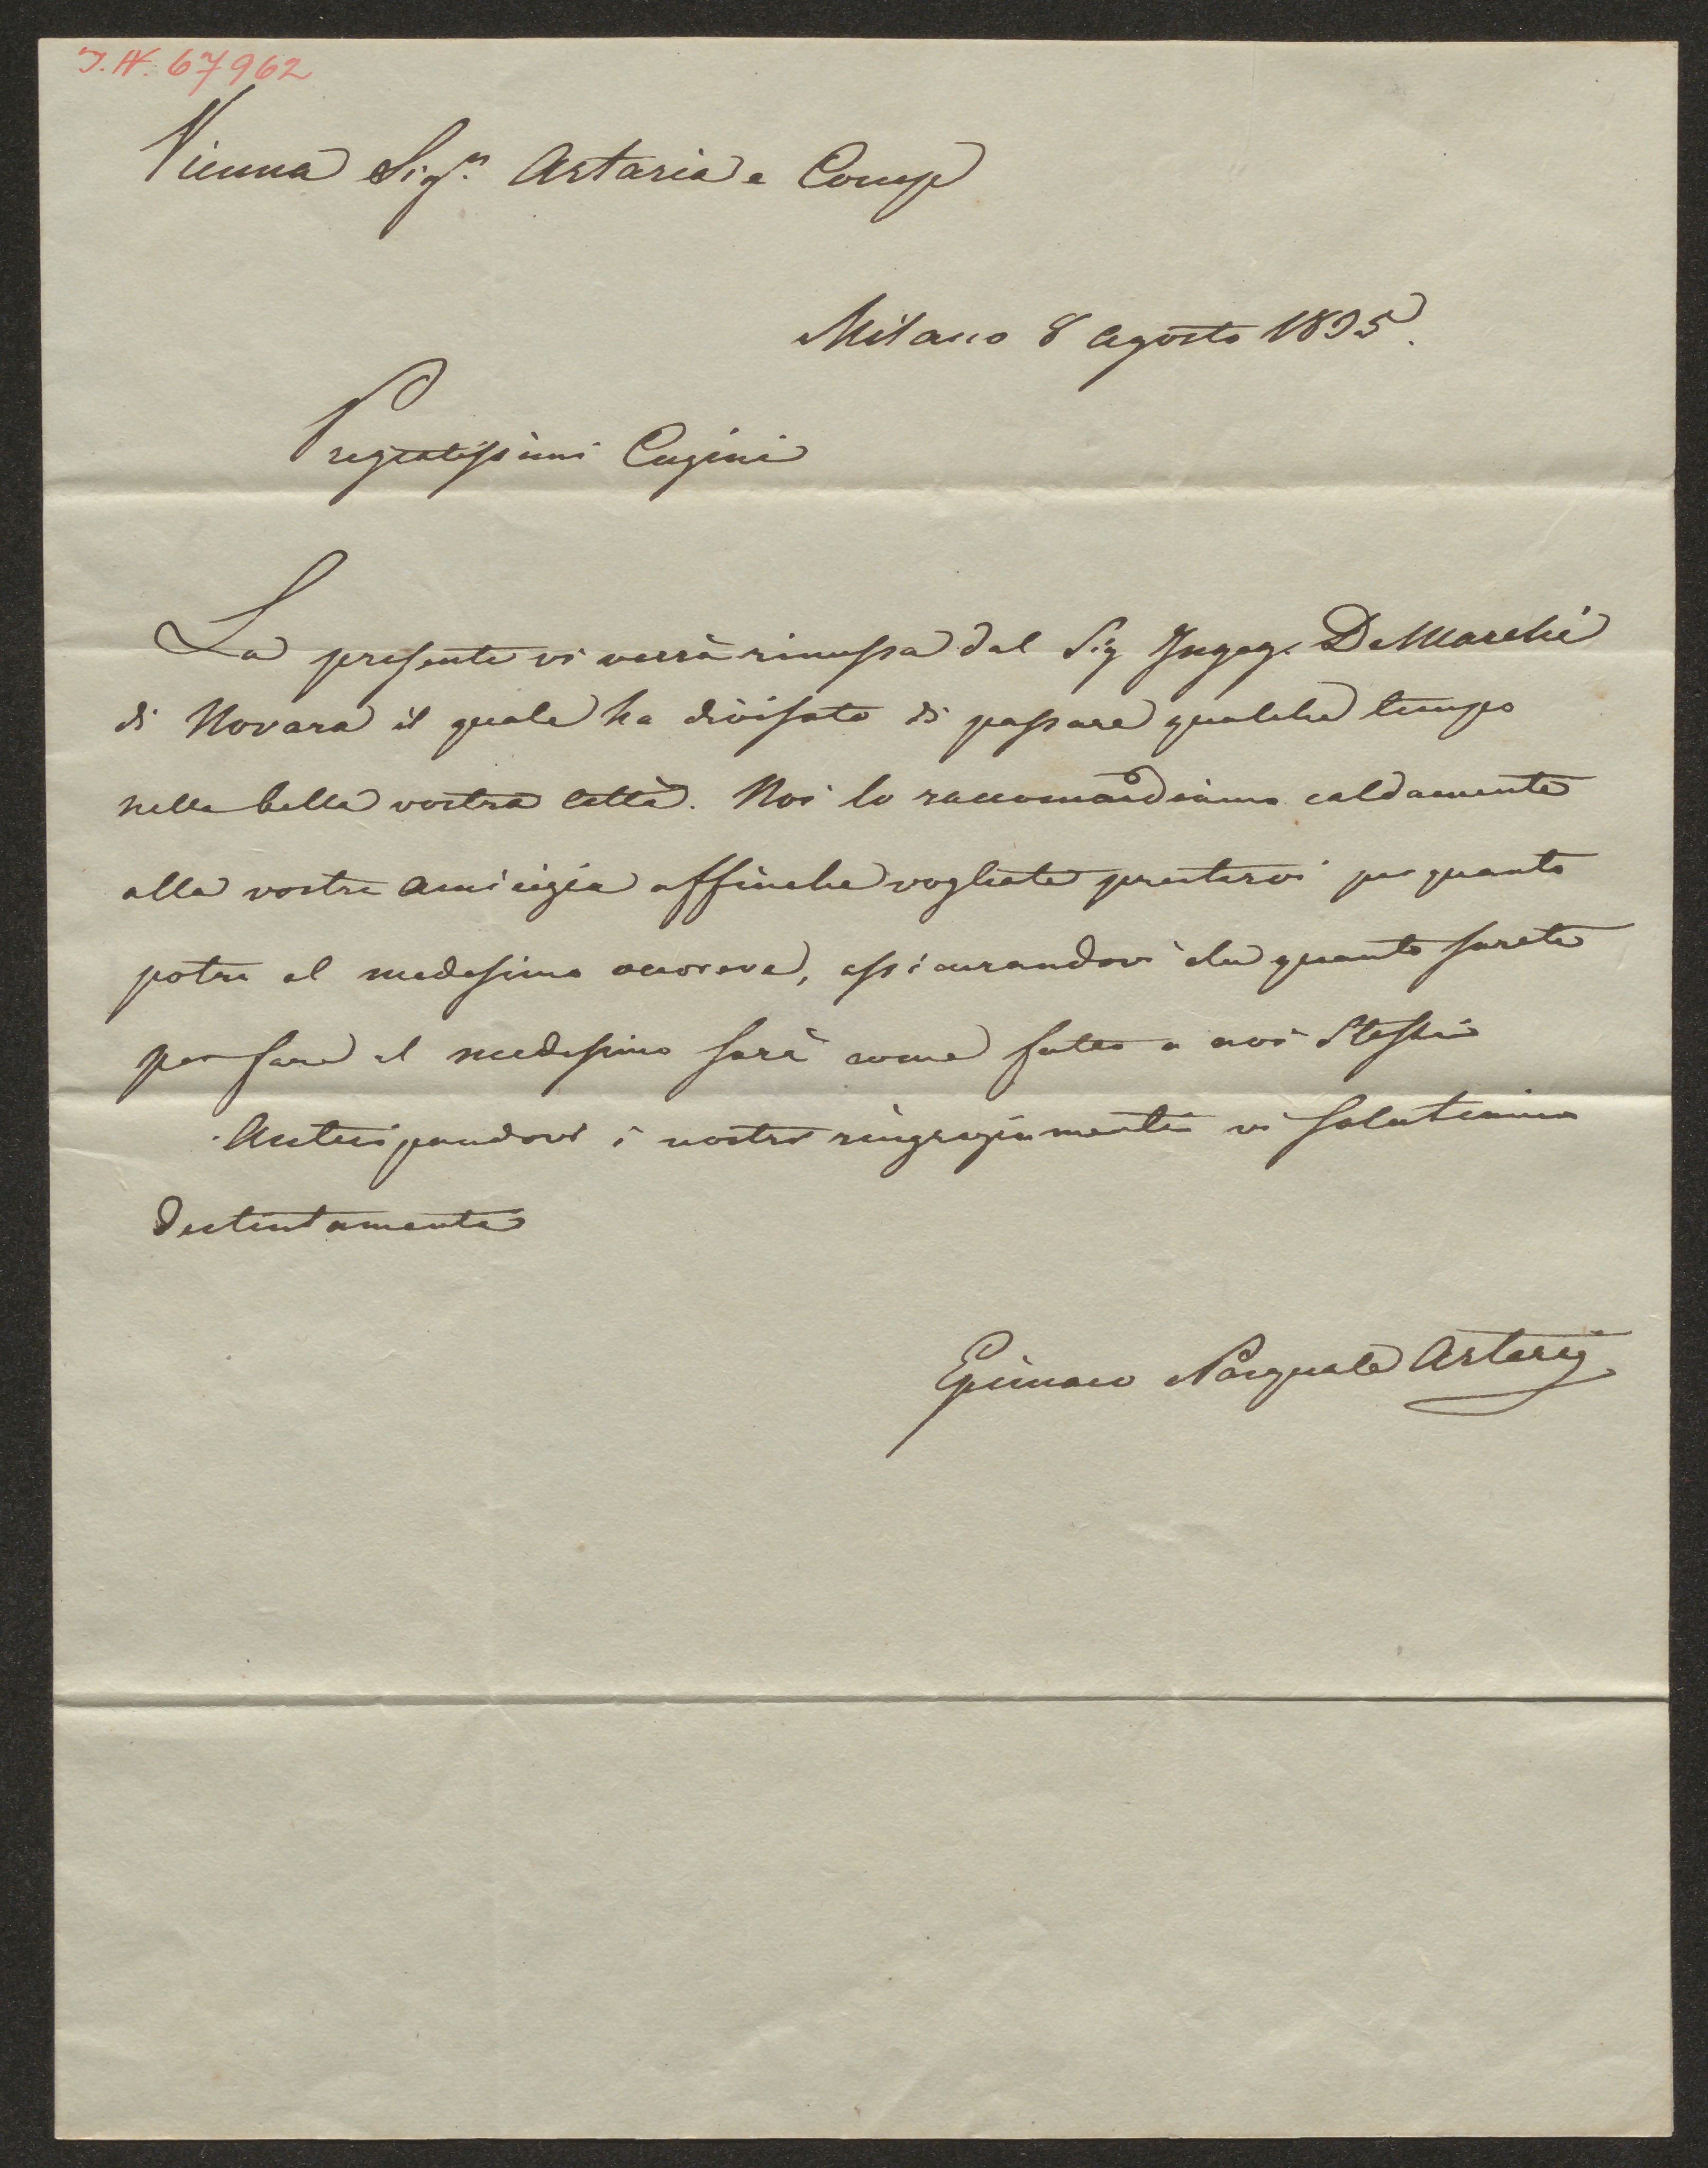 I.N. 67962
Vienna Sig.ri Artaria e Comp
Milano 8 Agosto 1835.
Pregiatissimi Cugini
La presente vi verrà rimessa dal Sig Ingeg. DeMarchi
di Novara il quale ha divisato di passare qualche tempo
nella bella vostra città. Noi lo raccomandiamo caldamente
alla vostra amicizia affinche vogliate prestarvi per quanto
potra al medesimo occorere, assicurandovi che quanto sarete
per fare al medesimo sarà come fatto a noi stessi
Anticipandovi i nostri ringraziamenti vi salutiamo
distintamente
Epimaco Pasquale Artaria